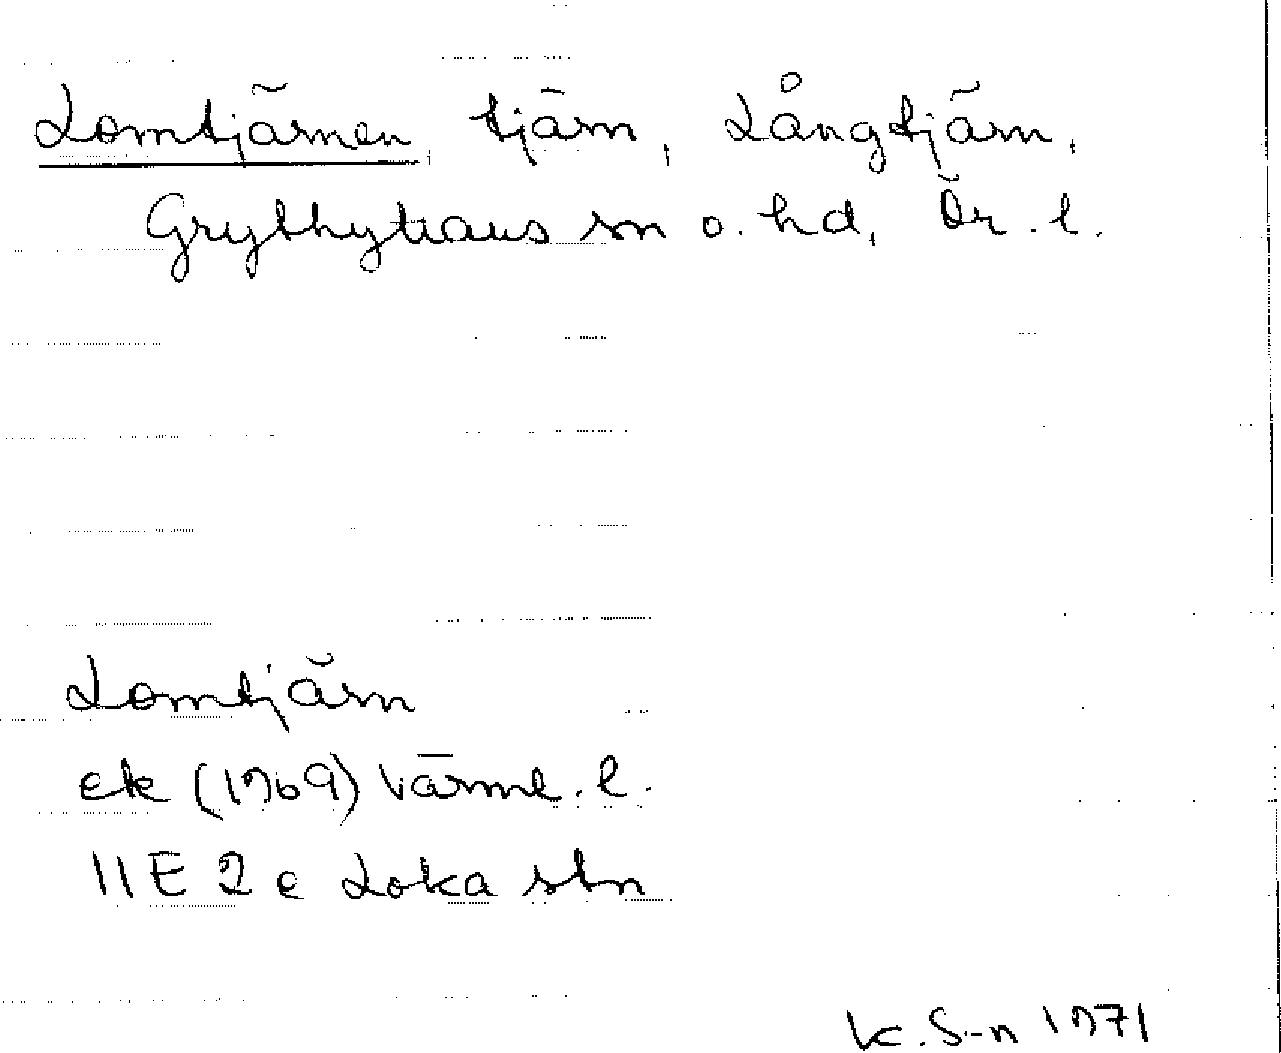 Lomtjärnen, tjärn, Långtjärn,
Grythyttans sn o. hd, Ör. l.
Lomtjärn
ek (1969) Värml. l.
11E 2e Loka stn
K. S-n 1971